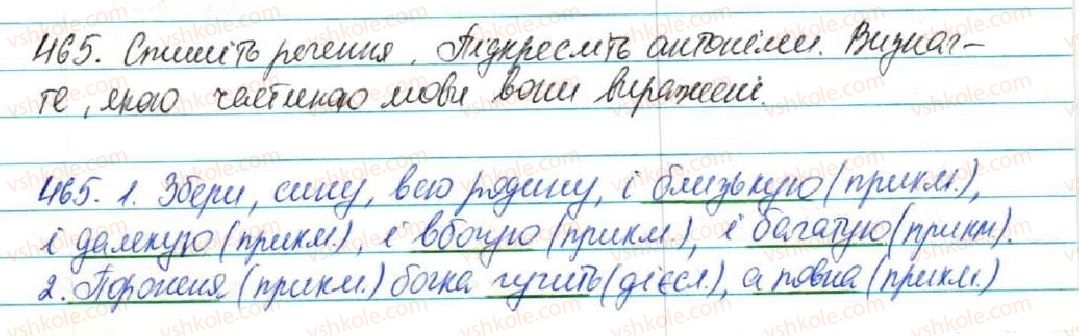 465. Спишіть речення. Підкресліть антоніми. Визнач-
те, якою частиною мови вони виражені.
465. 1. Збери, сину, всю родину, і близькую (прикм.),
і далекую (прикм.), і вбогую (прикм.), і багатую (прикм).
2. Порожня (прикм.) бочка гучить (дієсл.), а повна (прикм.)